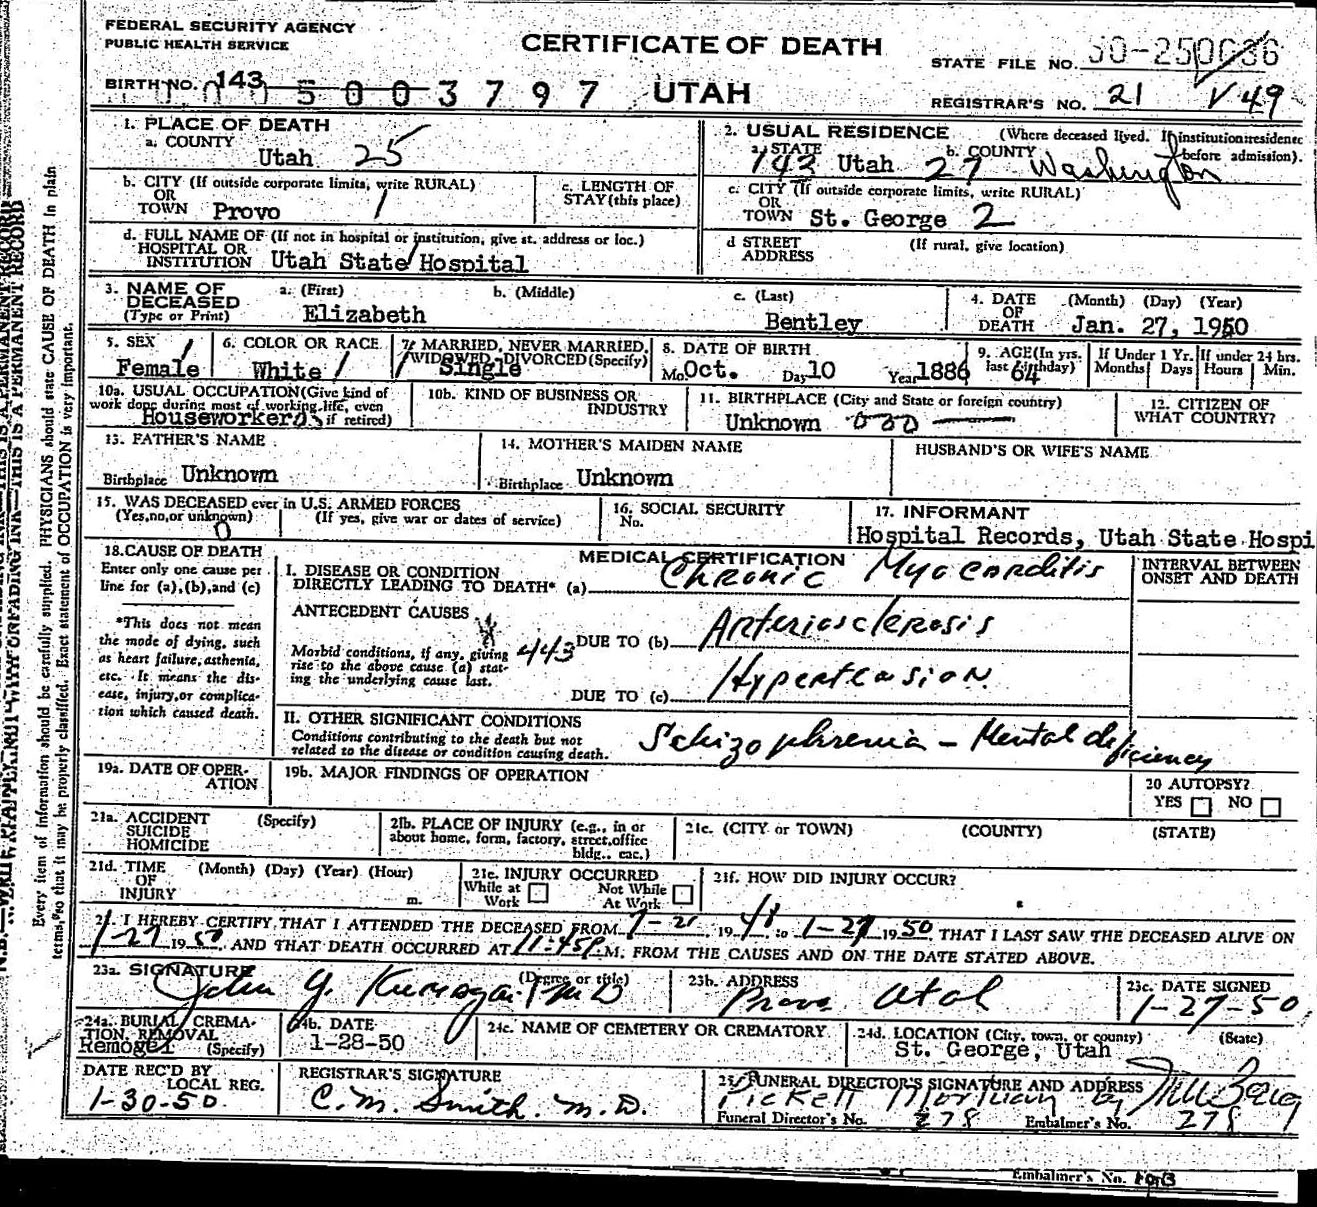 FEDERAL SECURITY AGENCY
PUBLIC HEALTH SERVICE
CERTIFICATE OF DEATH
STATE FILE NO.
BIRTH NO. 143
5003797
UTAH
REGISTRAR'S NO. 21 V 49
1. PLACE OF DEATH
a. COUNTY
Utah 25
2. USUAL RESIDENCE (Where deceased lived. If institution: residence before admission).
a. STATE b. COUNTY
143 Utah 27 Washington
b. CITY (If outside corporate limits, write RURAL)
OR
TOWN Provo 1
c. LENGTH OF
STAY (this place)
c. CITY (If outside corporate limits, write RURAL)
OR
TOWN St. George 2
d. FULL NAME OF (If not in hospital or institution, give st. address or loc.)
HOSPITAL OR
INSTITUTION Utah State Hospital
d STREET (If rural, give location)
ADDRESS
3. NAME OF
DECEASED
(Type or Print)
a. (First) b. (Middle) c. (Last)
Elizabeth Bentley
4. DATE (Month) (Day) (Year)
OF
DEATH Jan. 27, 1950
5. SEX
Female
6. COLOR OR RACE
White
7. MARRIED, NEVER MARRIED,
WIDOWED, DIVORCED (Specify)
Single
8. DATE OF BIRTH
Mo. Oct. Day 10 Year 1886
9. AGE (In yrs.
last birthday)
64
If Under 1 Yr.
Months Days
If under 24 hrs.
Hours Min.
10a. USUAL OCCUPATION (Give kind of
work done during most of working life, even
if retired)
Houseworker
10b. KIND OF BUSINESS OR
INDUSTRY
11. BIRTHPLACE (City and State or foreign country)
Unknown
12. CITIZEN OF
WHAT COUNTRY?
13. FATHER'S NAME
Birthplace Unknown
14. MOTHER'S MAIDEN NAME
Birthplace Unknown
HUSBAND'S OR WIFE'S NAME
15. WAS DECEASED ever in U.S. ARMED FORCES
(Yes, no, or unknown) (If yes, give war or dates of service)
0
16. SOCIAL SECURITY
No.
17. INFORMANT
Hospital Records, Utah State Hospi
18. CAUSE OF DEATH
Enter only one cause per
line for (a), (b), and (c)
*This does not mean
the mode of dying, such
as heart failure, asthenia,
etc. It means the dis-
ease, injury, or complica-
tion which caused death.
MEDICAL CERTIFICATION
I. DISEASE OR CONDITION
DIRECTLY LEADING TO DEATH* (a) Chronic Myocarditis
INTERVAL BETWEEN
ONSET AND DEATH
ANTECEDENT CAUSES
Morbid conditions, if any, giving
rise to the above cause (a) stat-
ing the underlying cause last.
443
DUE TO (b) Arteriosclerosis
DUE TO (c) Hypertension
II. OTHER SIGNIFICANT CONDITIONS
Conditions contributing to the death but not
related to the disease or condition causing death.
Schizophrenia - Mental deficiency
19a. DATE OF OPER-
ATION
19b. MAJOR FINDINGS OF OPERATION
20 AUTOPSY?
YES NO
21a. ACCIDENT (Specify)
SUICIDE
HOMICIDE
21b. PLACE OF INJURY (e.g., in or
about home, form, factory, street, office
bldg., eac.)
21c. (CITY or TOWN) (COUNTY) (STATE)
21d. TIME (Month) (Day) (Year) (Hour)
OF
INJURY m.
21e. INJURY OCCURRED
While at
Work
Not While
At Work
21f. HOW DID INJURY OCCUR?
I HEREBY CERTIFY THAT I ATTENDED THE DECEASED FROM 19 to 1-27 1950, THAT I LAST SAW THE DECEASED ALIVE ON
1-27 1950, AND THAT DEATH OCCURRED AT 11:45P.M. FROM THE CAUSES AND ON THE DATE STATED ABOVE.
23a. SIGNATURE (Degree or title)
John Y. M D
23b. ADDRESS
Provo Utah
23c. DATE SIGNED
1-27-50
24a. BURIAL, CREMA-
TION, REMOVAL
(Specify)
Removal
24b. DATE
1-28-50
24c. NAME OF CEMETERY OR CREMATORY
24d. LOCATION (City, town, or county) (State)
St. George, Utah
DATE REC'D BY
LOCAL REG.
1-30-50.
REGISTRAR'S SIGNATURE
C. M. Smith. M. D.
25. FUNERAL DIRECTOR'S SIGNATURE AND ADDRESS
Pickett Mortuary by
Funeral Director's No. 278 Embalmer's No. 278
Embalmer's No.
Every item of information should be carefully supplied. PHYSICIANS should state CAUSE OF DEATH in plain
terms, so that it may be properly classified. Exact statement of OCCUPATION is very important.
N.B.—WRITE PLAINLY WITH UNFADING INK—THIS IS A PERMANENT RECORD